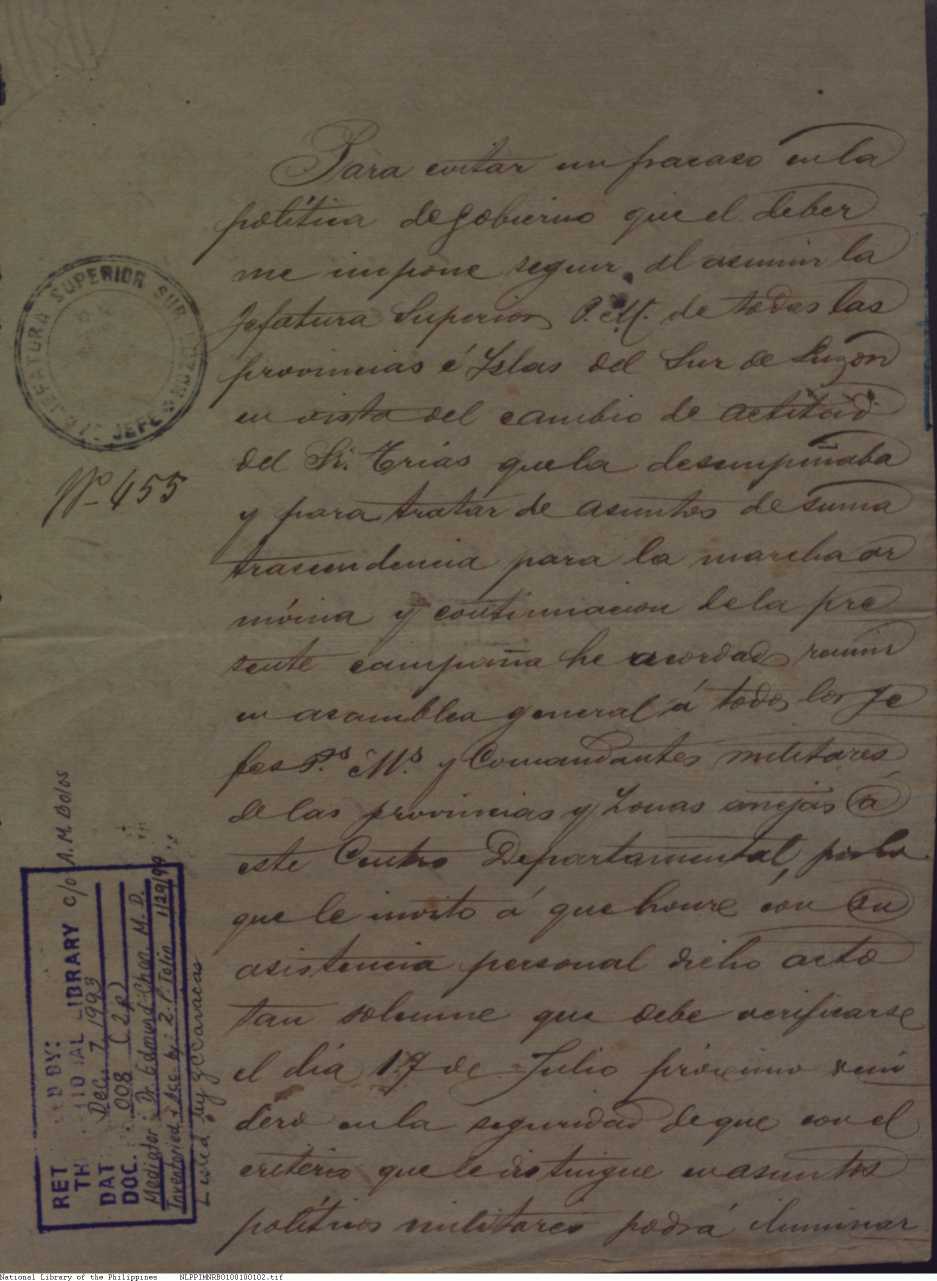 Para evitar un fracaso en la
política de gobierno que el deber
me impone seguir, al asumir la
Jefatura Superior P. M. de todas las
provincias é Islas del Sur de Luzon
en vista del cambio de actitud
del Sr. Trias que la desempeñaba
y para tratar de asuntos de suma
trascendencia para la marcha ar
mónica y continuacion de la pre
sente campaña he acordado reunir
en asamblea general á todos los Je
fes P.s M.s y Comandantes militares
de las provincias y Zonas anejas á
este Centro Departamental, por lo
que le invito á que honre con su
asistencia personal dicho acto
tan solemne que debe verificarse
el dia 17 de Julio próximo veni
dero en la seguridad de que con el
criterio que le distingue en asuntos
políticos militares podrá iluminar
JEFATURA SUPERIOR SUR LUZON
JEFE
Nº 455
RET ED BY:
TH NATIONAL LIBRARY c/o A. M. Bolos
DAT Dec. 7, 1993
DOC. 008 (2P)
Mediator: Dr. Edmund Choa, M.D.
Inventoried & Acc by: 1/29/94
National Library of the Philippines NLPPIMNRB0100100102.tif